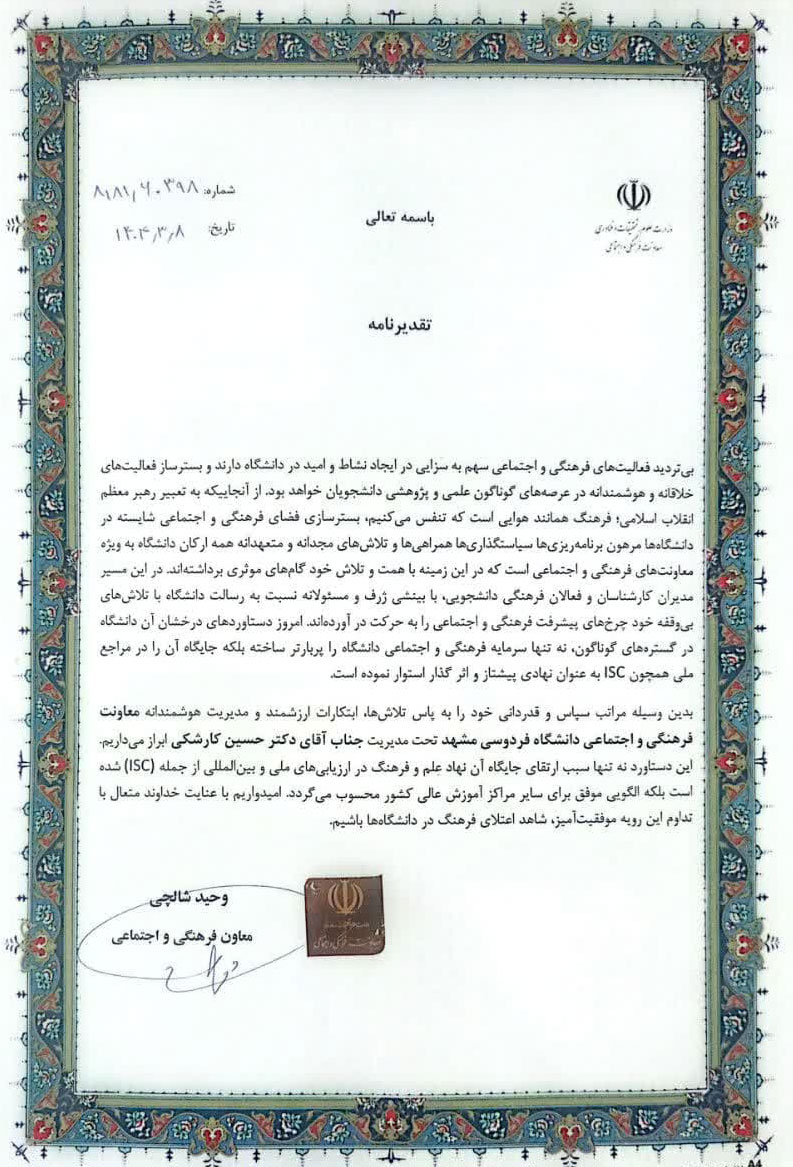 وزارت علوم، تحقیقات و فناوری
معاونت فرهنگی و اجتماعی
باسمه تعالی
شماره: ۸۱۸۱,۶۰۳۹۸
تاریخ: ۱۴۰۴,۳,۸
تقدیرنامه
بی‌تردید فعالیت‌های فرهنگی و اجتماعی سهم به سزایی در ایجاد نشاط و امید در دانشگاه دارند و بسترساز فعالیت‌های
خلاقانه و هوشمندانه در عرصه‌های گوناگون علمی و پژوهشی دانشجویان خواهد بود. از آنجاییکه به تعبیر رهبر معظم
انقلاب اسلامی؛ فرهنگ همانند هوایی است که تنفس می‌کنیم، بسترسازی فضای فرهنگی و اجتماعی شایسته در
دانشگاه‌ها مرهون برنامه‌ریزی‌ها سیاستگذاری‌ها همراهی‌ها و تلاش‌های مجدانه و متعهدانه همه ارکان دانشگاه به ویژه
معاونت‌های فرهنگی و اجتماعی است که در این زمینه با همت و تلاش خود گام‌های موثری برداشته‌اند. در این مسیر
مدیران کارشناسان و فعالان فرهنگی دانشجویی، با بینشی ژرف و مسئولانه نسبت به رسالت دانشگاه با تلاش‌های
بی‌وقفه خود چرخ‌های پیشرفت فرهنگی و اجتماعی را به حرکت در آورده‌اند. امروز دستاوردهای درخشان آن دانشگاه
در گستره‌های گوناگون، نه تنها سرمایه فرهنگی و اجتماعی دانشگاه را پربارتر ساخته بلکه جایگاه آن را در مراجع
ملی همچون ISC به عنوان نهادی پیشتاز و اثر گذار استوار نموده است.
بدین وسیله مراتب سپاس و قدردانی خود را به پاس تلاش‌ها، ابتکارات ارزشمند و مدیریت هوشمندانه معاونت
فرهنگی و اجتماعی دانشگاه فردوسی مشهد تحت مدیریت جناب آقای دکتر حسین کارشکی ابراز می‌داریم.
این دستاورد نه تنها سبب ارتقای جایگاه آن نهاد علم و فرهنگ در ارزیابی‌های ملی و بین‌المللی از جمله (ISC) شده
است بلکه الگویی موفق برای سایر مراکز آموزش عالی کشور محسوب می‌گردد. امیدواریم با عنایت خداوند متعال با
تداوم این رویه موفقیت‌آمیز، شاهد اعتلای فرهنگ در دانشگاه‌ها باشیم.
وحید شالچی
معاون فرهنگی و اجتماعی